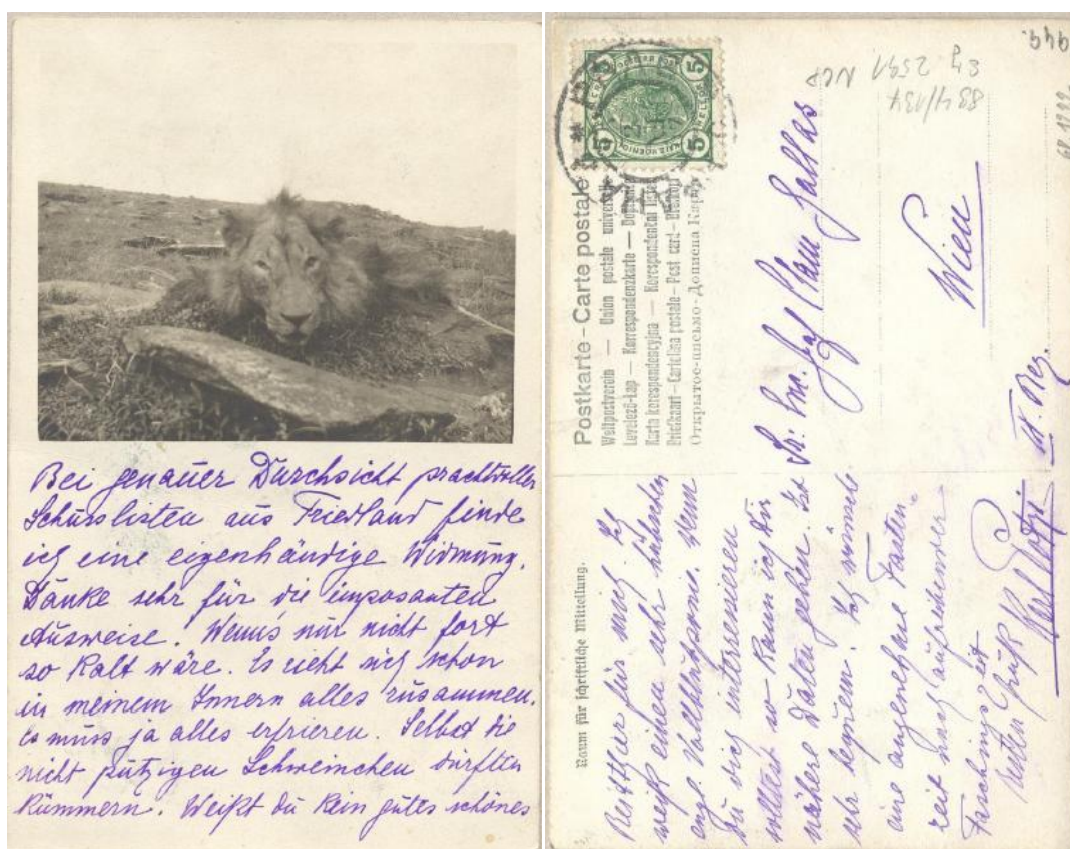 Bei genauer Durchsicht prachtvoller
Schusslisten aus Friedland finde
ich eine eigenhändige Widmung.
Danke sehr für die imposanten
Ausweise. Wenn's nur nicht fort
so kalt wäre. Es zieht sich schon
in meinem Innern alles zusammen.
Es muss ja alles erfrieren. Selbst die
nicht putzigen Schweinchen dürften
kümmern. Weißt du kein gutes schönes
Postkarte – Carte postale
Weltpostverein — Union postale universelle
Levelező-Lap — Korrespondenzkarte —
Karta korespondencyjna — Korespondenční lístek
Briefkaart – Cartolina postale – Post card –
Открытое письмо – Дописна
5 5
5 5
Clam Gallas
Wien
III. Bez.
883/4/134
Eh 2591 NCP
949.
Raum für schriftliche Mitteilung.
Reittier für mich. Ich
weiß einen sehr hübschen
engl. Vollblutpony. Wenn
Du dich interessieren
wolltest so kann ich dir
nähere Daten geben. Ist
sehr bequem. Ich wünsche
eine angenehme Fasten-
zeit nach aufreibender
Faschingszeit